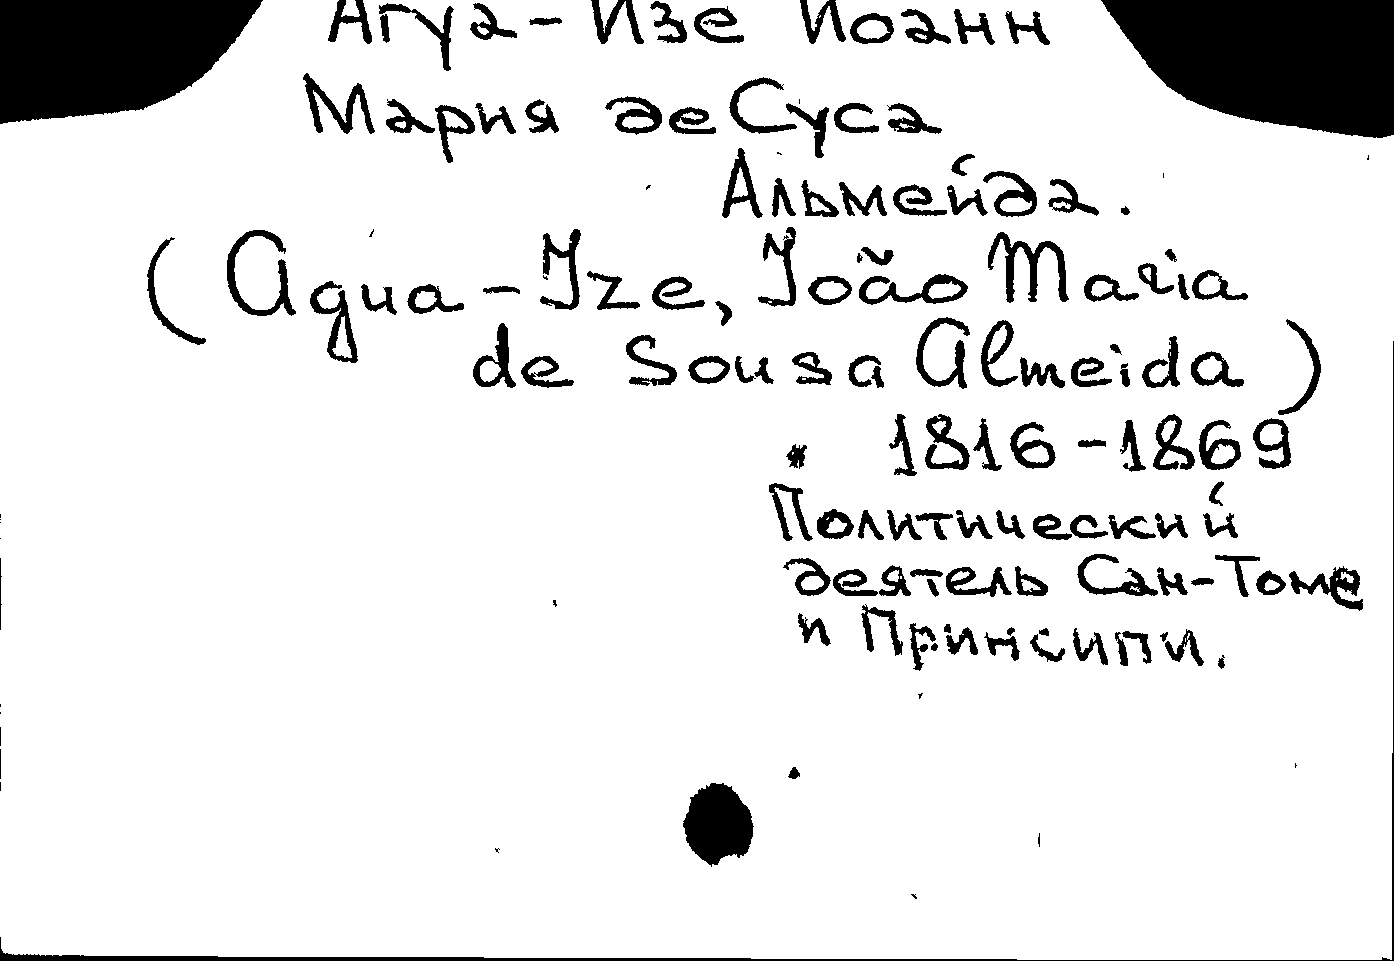 Агуа-Изе Иоанн
Мария де Суса
Альмейда.
(Agua-Ize, João Maria
de Sousa Almeida)
* 1816-1869
Политический
деятель Сан-Томе
и Принсипи.